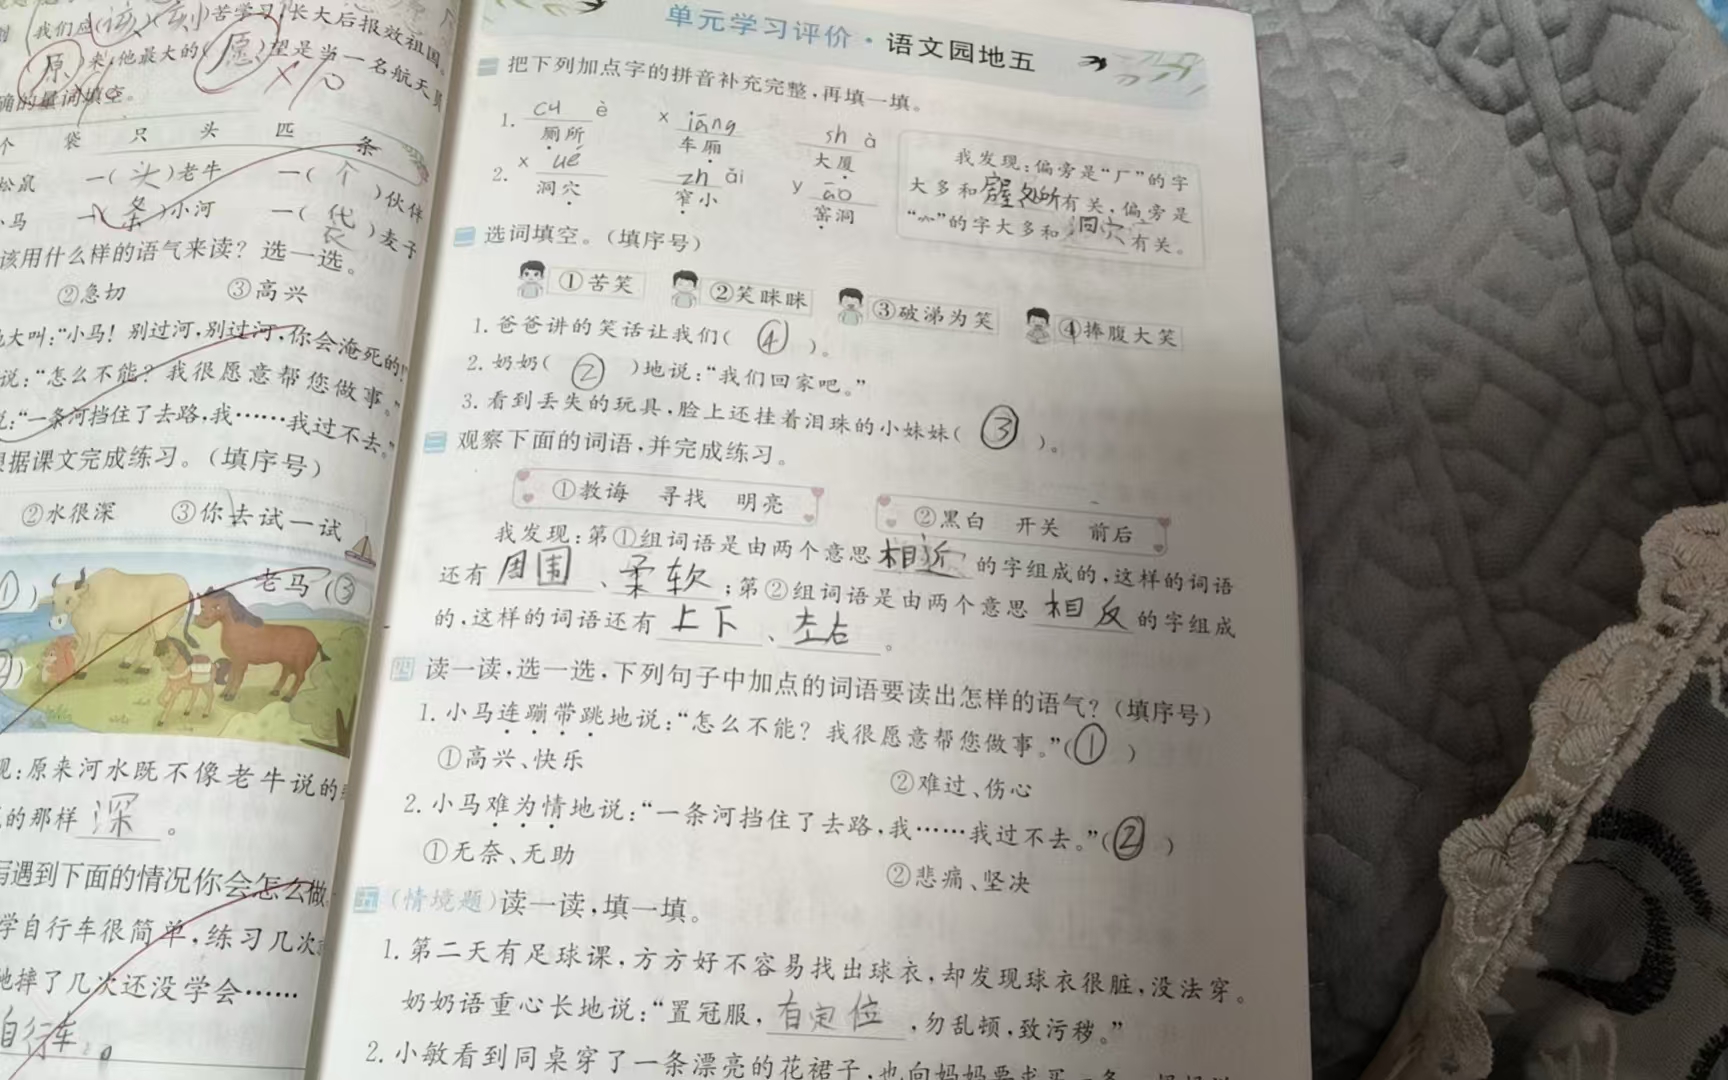 我们应(该)(刻)苦学习,长大后报效祖国。
(原)来,他最大的(愿)望是当一名航天
确的量词填空。
个 袋 只 头 匹 条
松鼠 一(头)老牛 一(个)伙伴
小马 一(条)小河 一(袋)麦子
该用什么样的语气来读?选一选。
②急切 ③高兴
大叫:“小马!别过河,别过河,你会淹死的!
说:“怎么不能?我很愿意帮您做事。”
说:“一条河挡住了去路,我……我过不去。”
根据课文完成练习。(填序号)
②水很深 ③你去试一试
①)
老马(③
现:原来河水既不像老牛说的
的那样深。
写遇到下面的情况你会怎么做
学自行车很简单,练习几次
他摔了几次还没学会……
自行车。
单元学习评价·语文园地五
一 把下列加点字的拼音补充完整,再填一填。
1. cù è x iāng sh à
厕所 车厢 大厦
2. x ué zh ǎi y áo
洞穴 窄小 窑洞
我发现:偏旁是“厂”的字
大多和房屋处所有关,偏旁是
“穴”的字大多和洞穴有关。
二 选词填空。(填序号)
①苦笑 ②笑眯眯 ③破涕为笑 ④捧腹大笑
1.爸爸讲的笑话让我们( ④ )。
2.奶奶( ② )地说:“我们回家吧。”
3.看到丢失的玩具,脸上还挂着泪珠的小妹妹( ③ )。
三 观察下面的词语,并完成练习。
①教诲 寻找 明亮 ②黑白 开关 前后
我发现:第①组词语是由两个意思相近的字组成的,这样的词语
还有周围、柔软;第②组词语是由两个意思相反的字组成
的,这样的词语还有上下、左右。
四 读一读,选一选,下列句子中加点的词语要读出怎样的语气?(填序号)
1.小马连蹦带跳地说:“怎么不能?我很愿意帮您做事。”(①)
①高兴、快乐 ②难过、伤心
2.小马难为情地说:“一条河挡住了去路,我……我过不去。”(②)
①无奈、无助 ②悲痛、坚决
五 (情境题)读一读,填一填。
1.第二天有足球课,方方好不容易找出球衣,却发现球衣很脏,没法穿。
奶奶语重心长地说:“置冠服,有定位,勿乱顿,致污秽。”
2.小敏看到同桌穿了一条漂亮的花裙子,也向妈妈要求买一条